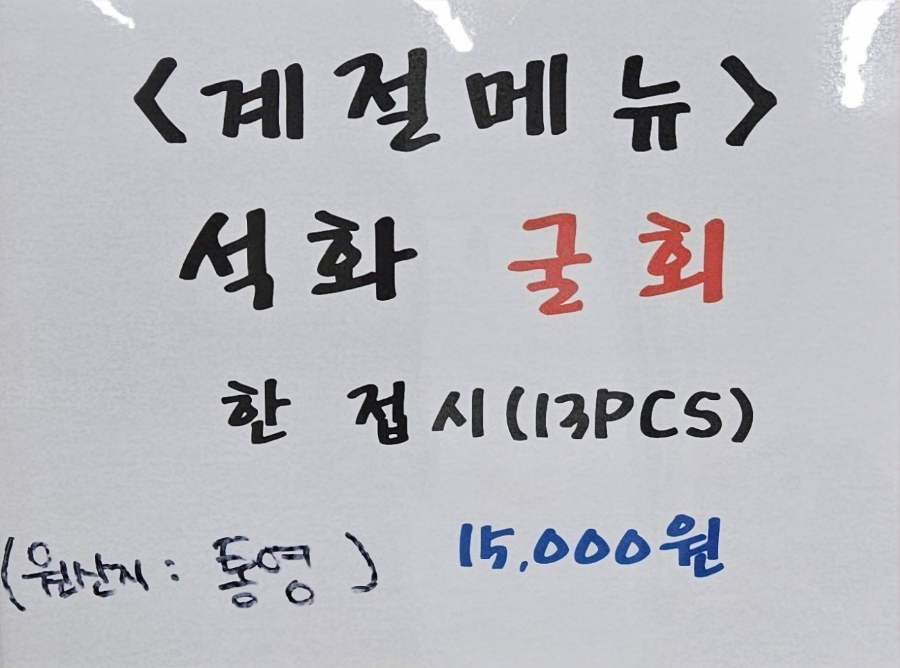 <계절메뉴>
석화 굴회
한 접시(13PCS)
15,000원
(원산지: 통영)